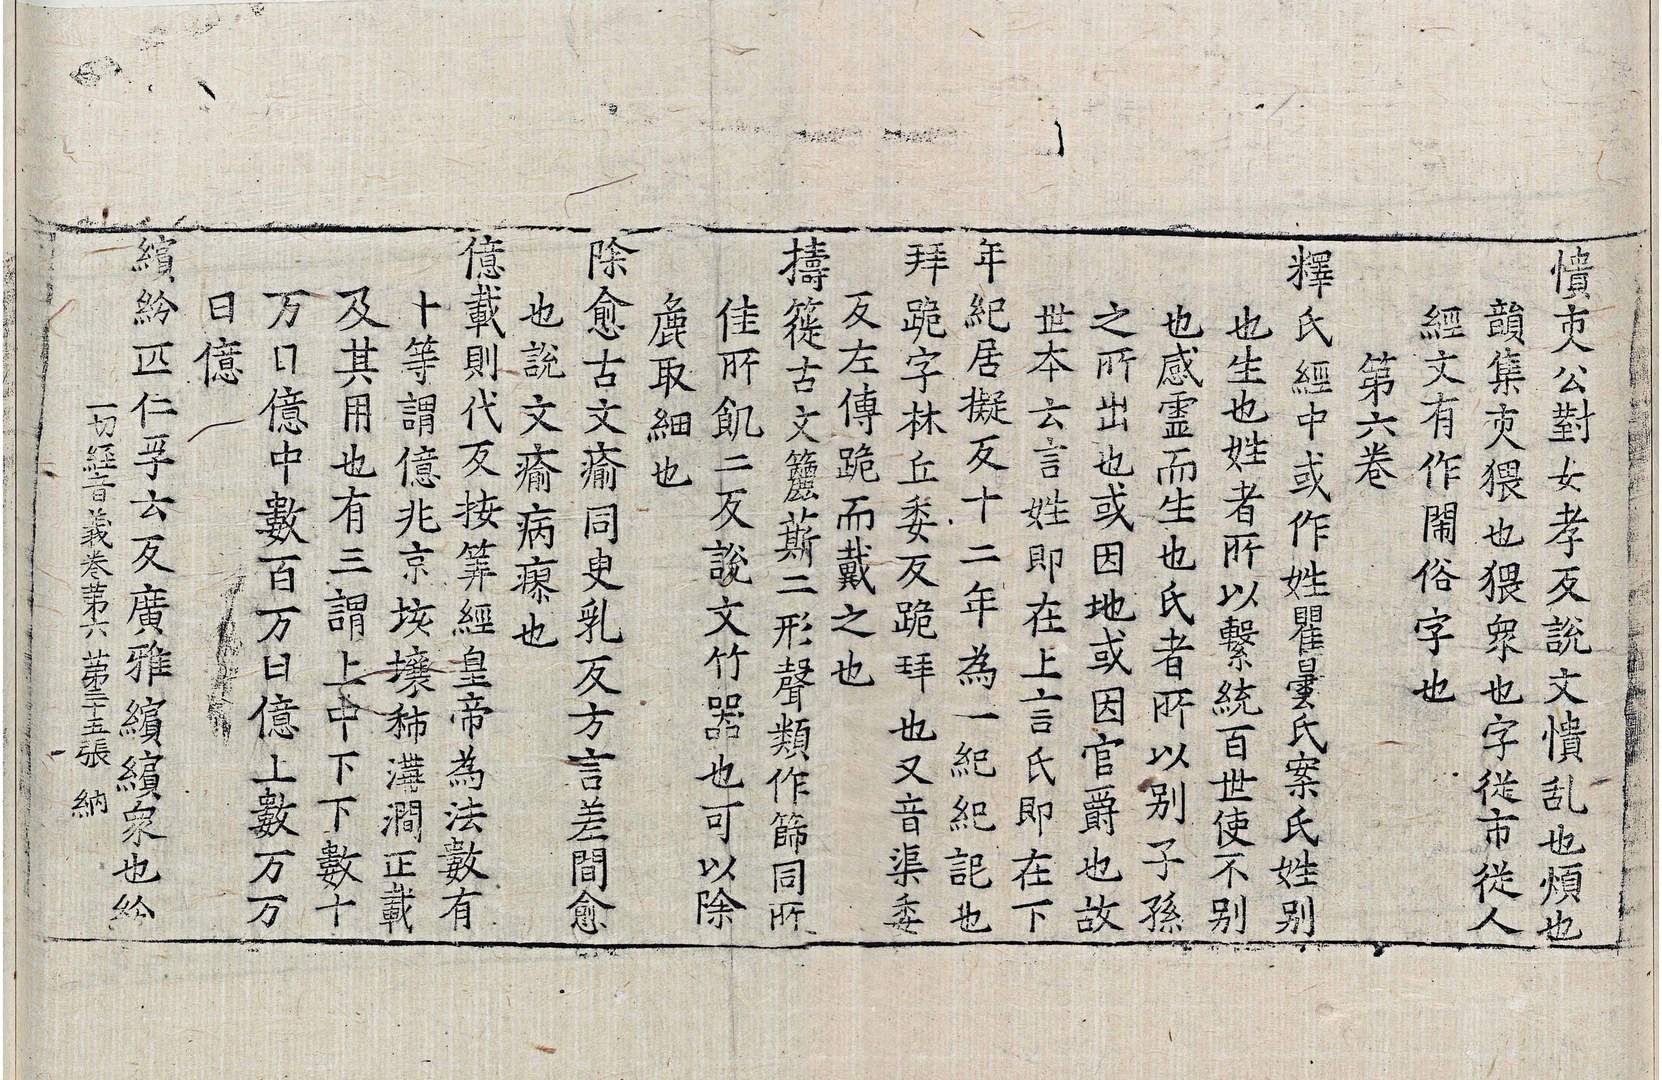 憒吏公對女孝反說文憒乱也煩也
韻集吏猥也猥衆也字從市從人
經文有作閙俗字也
第六卷
釋氏經中或作姓瞿曇氏案氏姓别
也生也姓者所以繫統百世使不别
也感霊而生也氏者所以别子孫
之所出也或因地或因官爵也故
世本云言姓即在上言氏即在下
年紀居擬反十二年為一紀紀記也
拜跪字林丘委反跪拜也又音渠委
反左傳跪而戴之也
擣簁古文籭䕲二形聲類作篩同所
佳所飢二反說文竹器也可以除
麁取細也
除愈古文瘉同臾乳反方言差間愈
也說文瘉病瘳也
億載則代反按筭經皇帝為法數有
十等謂億兆京垓壤秭溝澗正載
及其用也有三謂上中下下數十
万曰億中數百万曰億上數万万
曰億
繽紛匹仁孚云反廣雅繽繽衆也紛
一切經音義卷第六 第三十五張 納